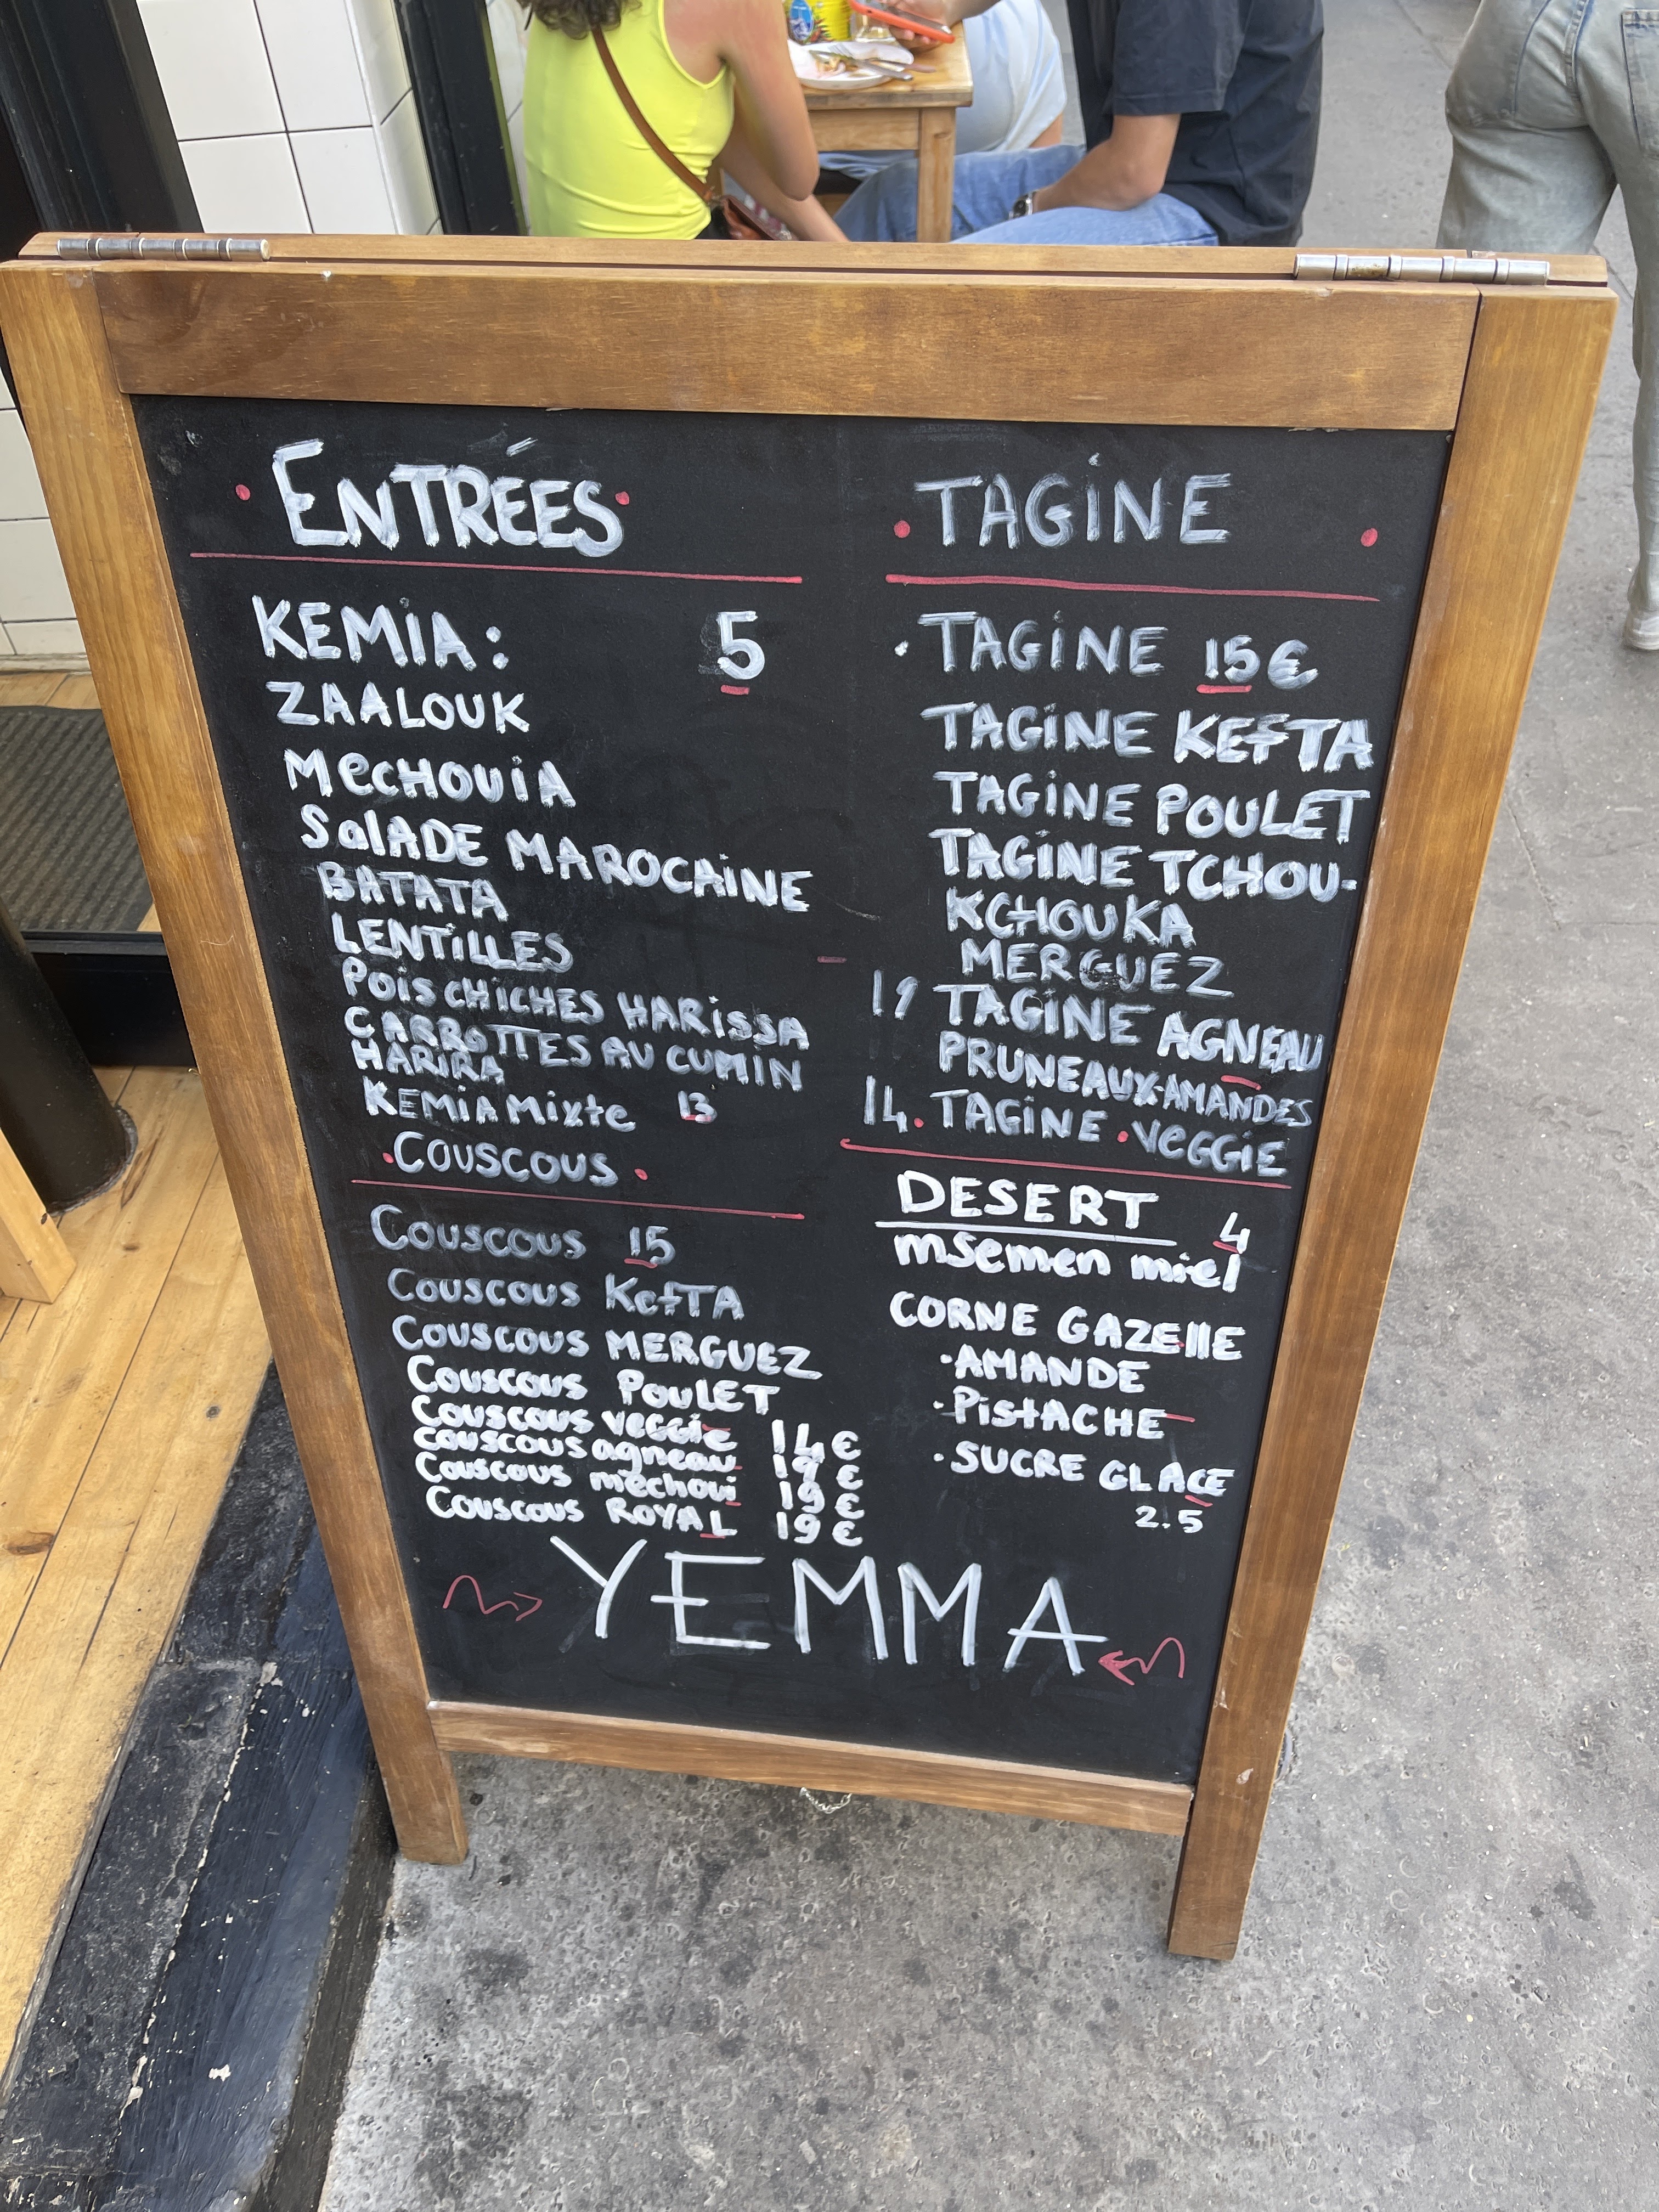 ENTRÉES
KEMIA: 5
ZAALOUK
MECHOUIA
SALADE MAROCAINE
BATATA
LENTILLES
POIS CHICHES HARISSA
CARROTTES AU CUMIN
HARIRA
KEMIA Mixte 13
COUSCOUS
COUSCOUS 15
COUSCOUS KEFTA
COUSCOUS MERGUEZ
COUSCOUS POULET
COUSCOUS veggie 14€
COUSCOUS agneau 19€
COUSCOUS mechoui 19€
COUSCOUS ROYAL 19€
TAGINE
TAGINE 15€
TAGINE KEFTA
TAGINE POULET
TAGINE TCHOU-
KCHOUKA
MERGUEZ
19 TAGINE AGNEAU
PRUNEAUX-AMANDES
14. TAGINE VEGGIE
DESERT 4
msemen miel
CORNE GAZELLE
·AMANDE
·PISTACHE
·SUCRE GLACE
2.5
YEMMA